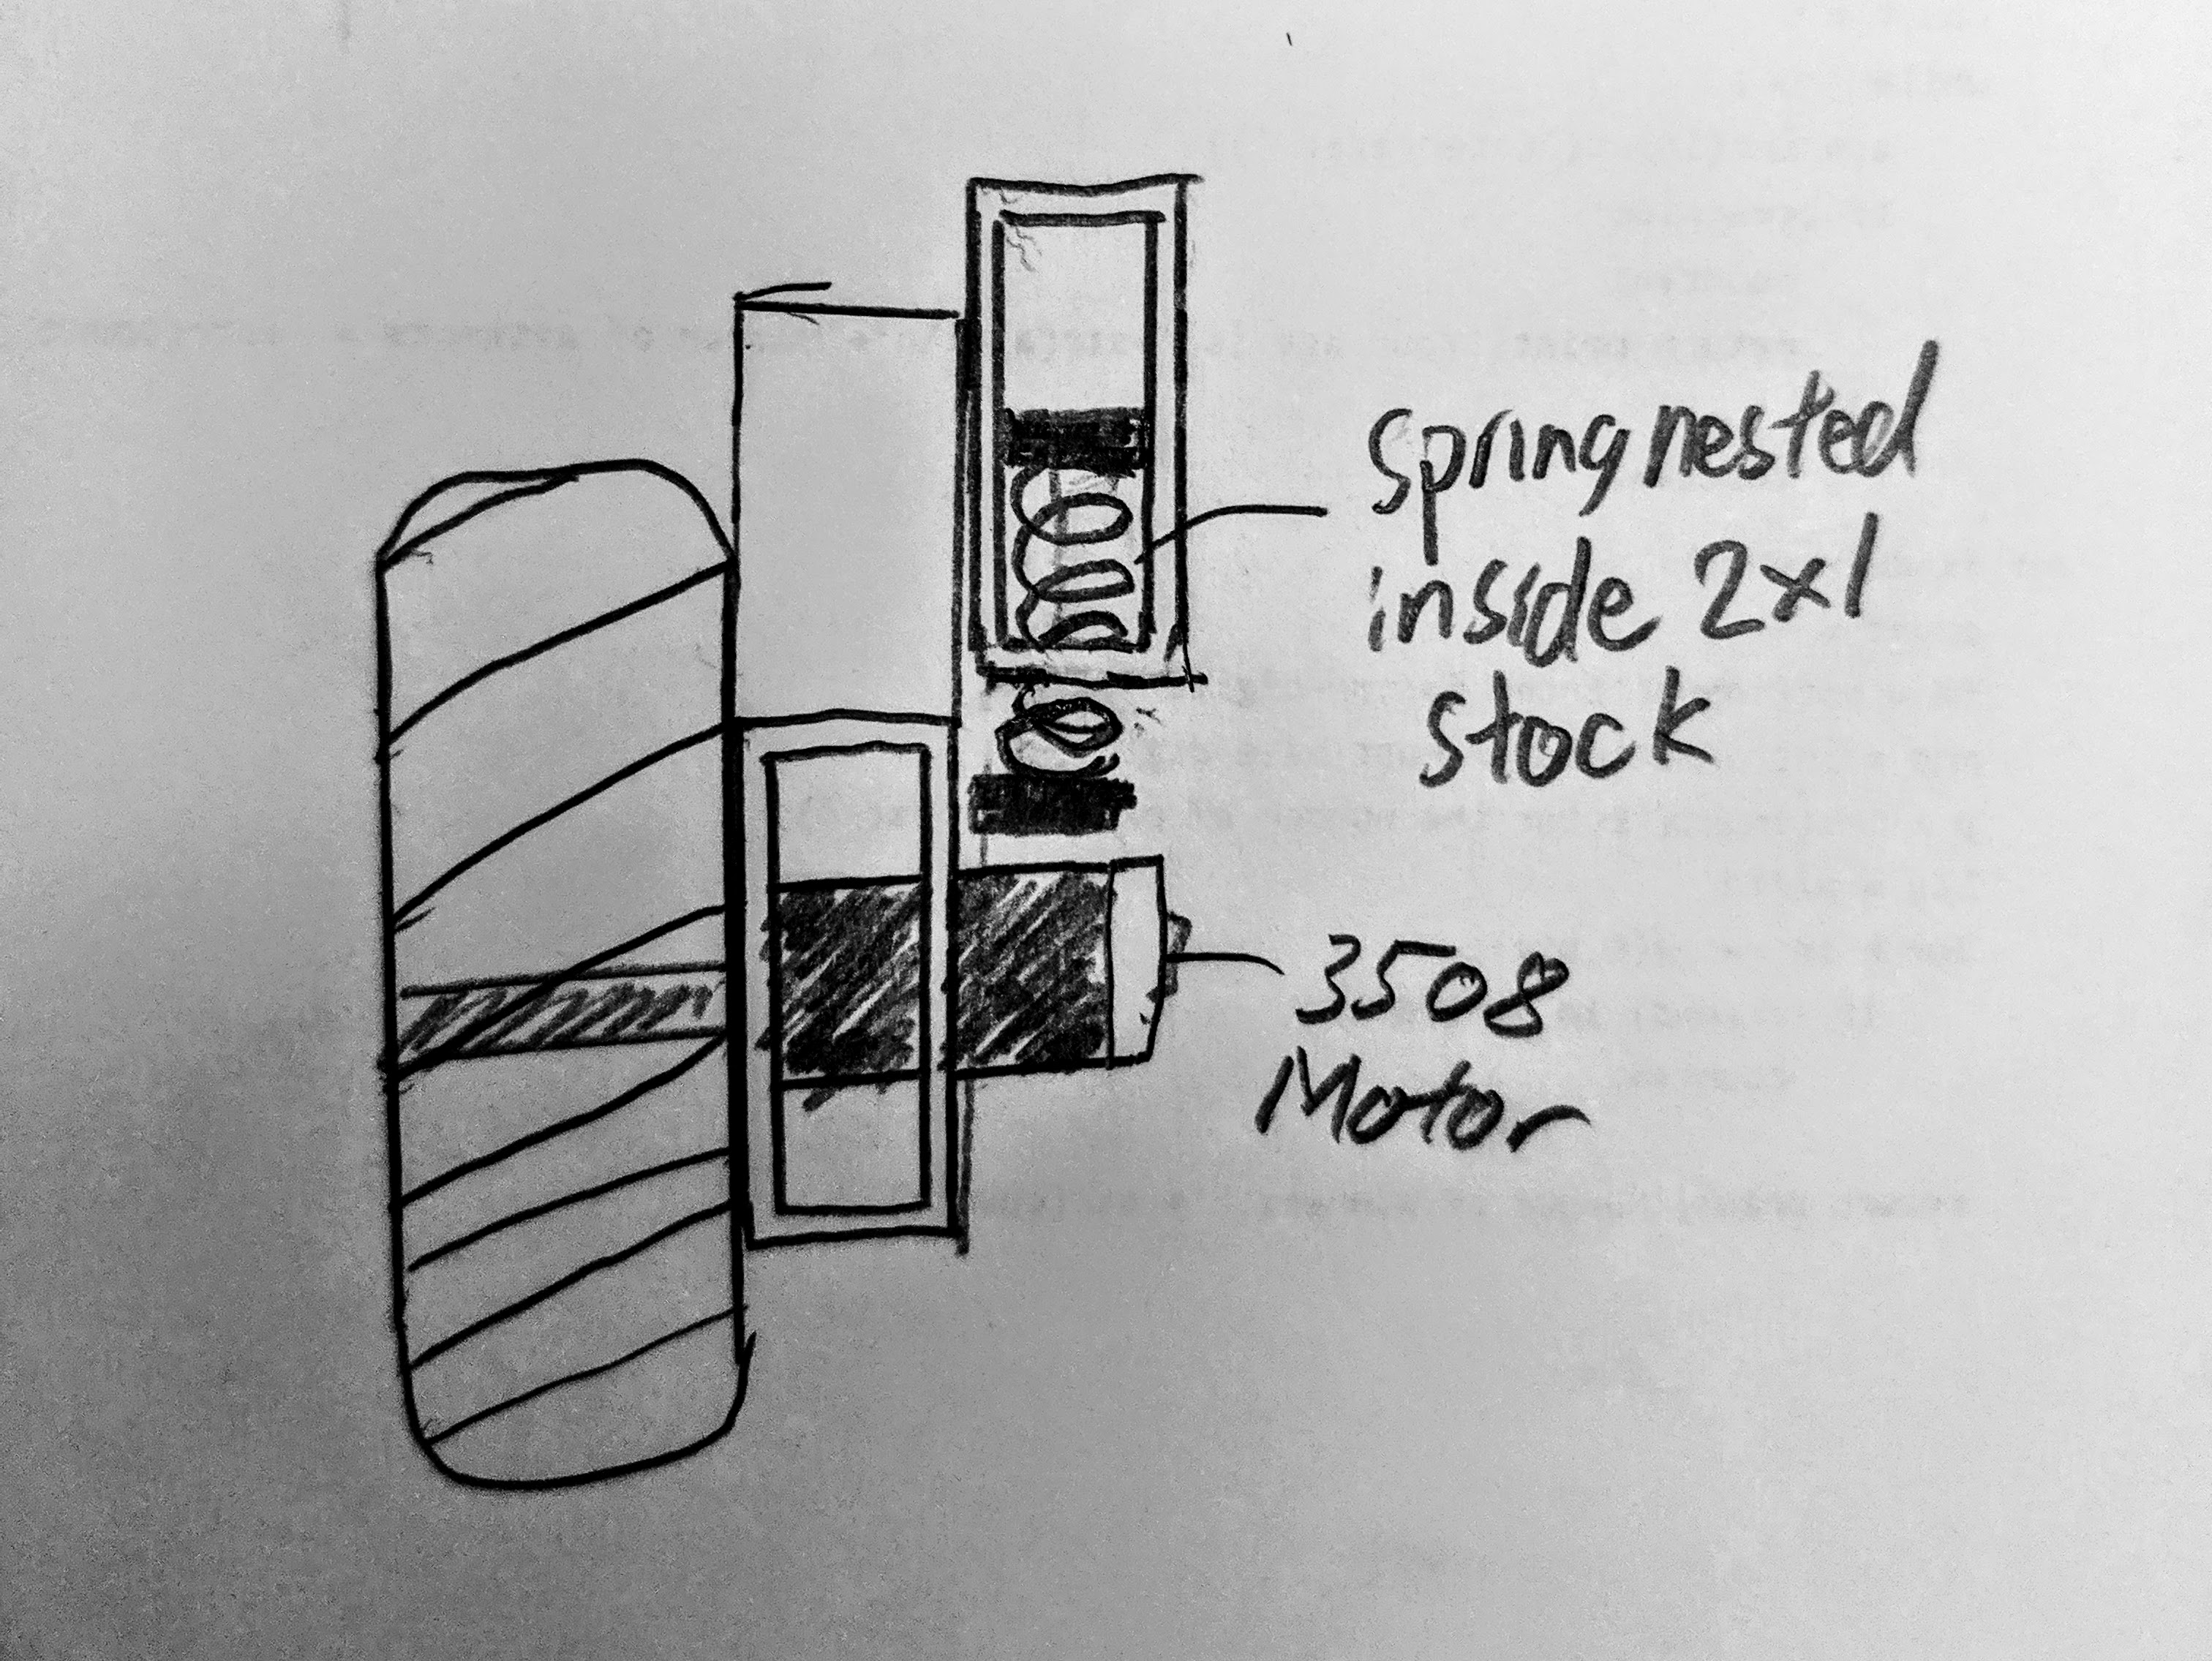 spring nested
inside 2x1
stock
3508
Motor